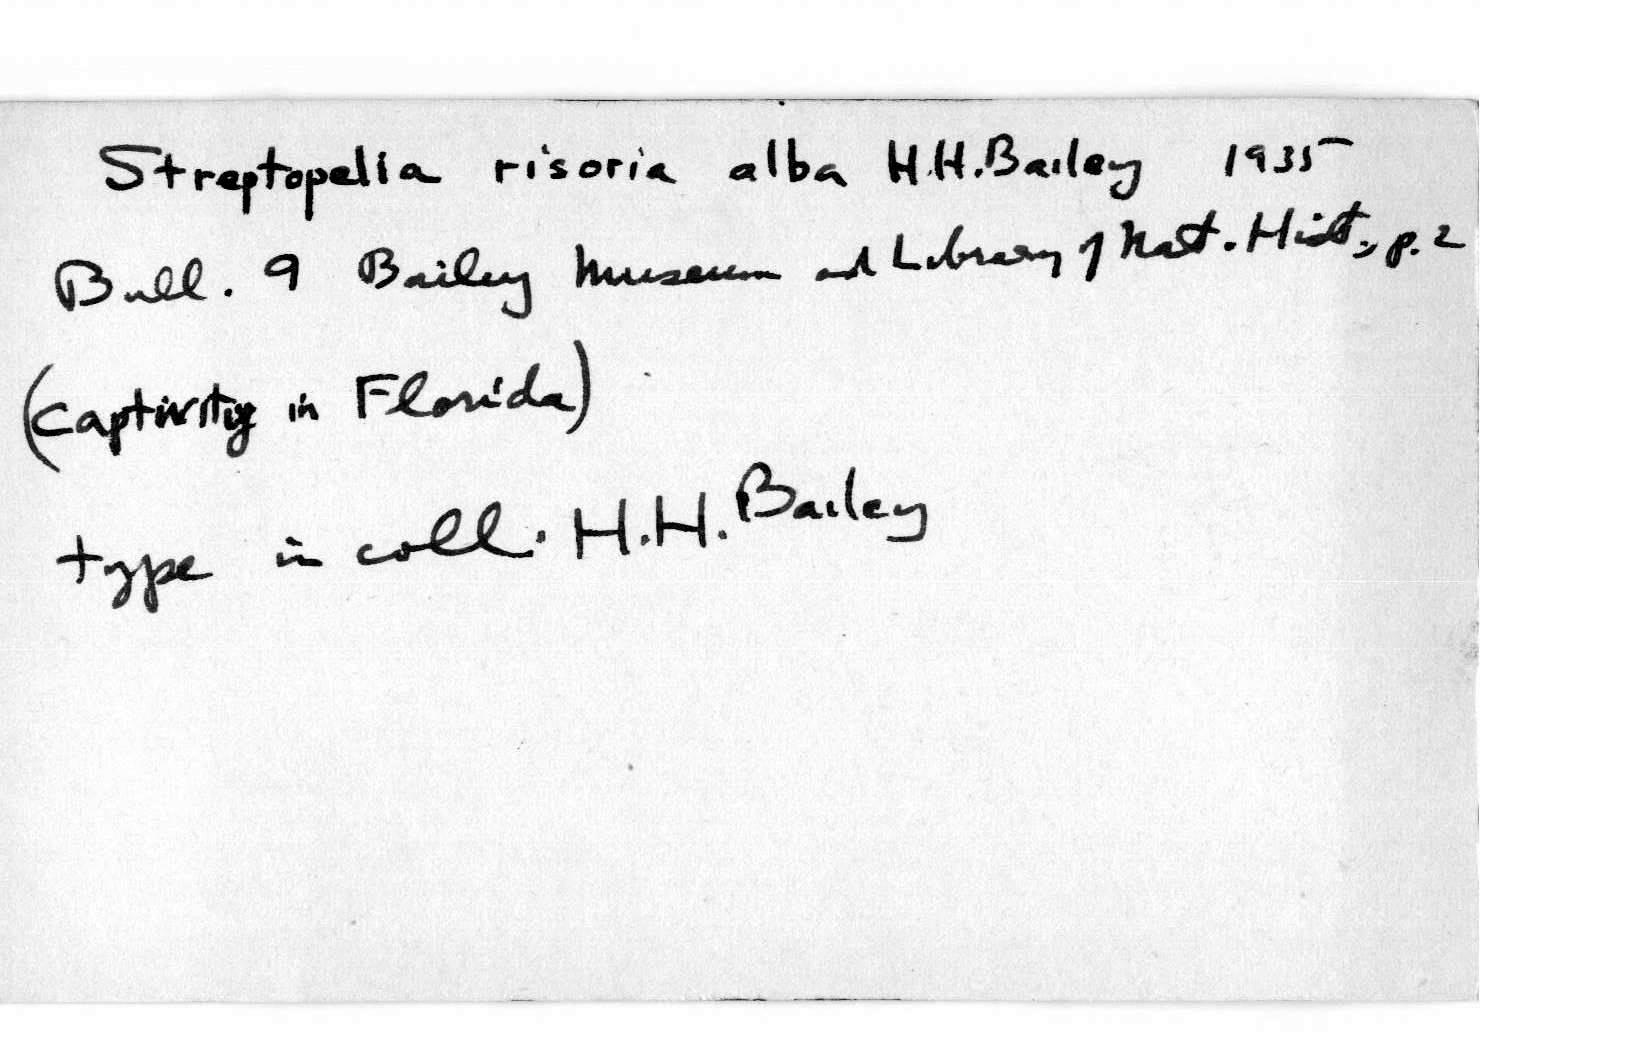 Streptopelia risoria alba H.H.Bailey 1935
Bull. 9 Bailey Museum and Library of Nat. Hist., p. 2
(Captivity in Florida)
type in coll. H.H. Bailey